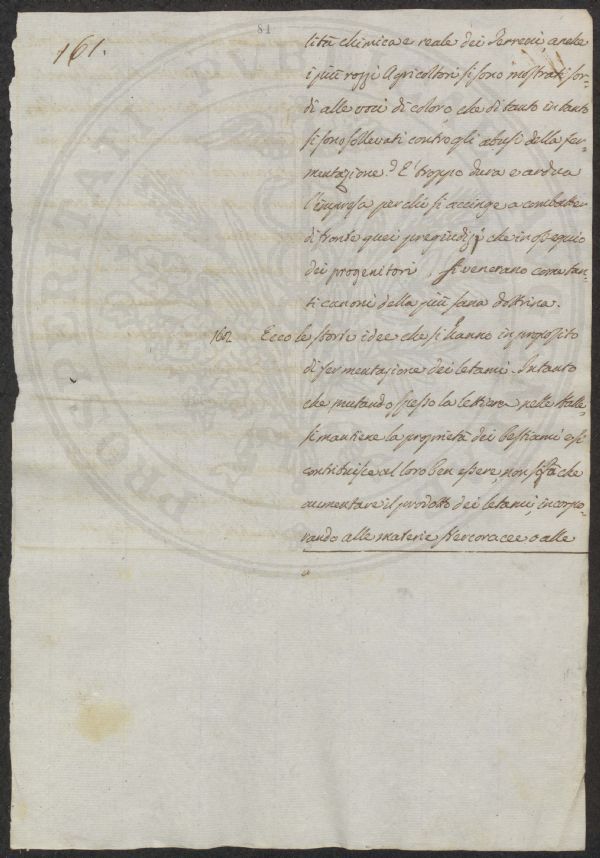 81
161.
lità chimica e reale dei Terreni, anche
i più rozzi Agricoltori si sono mostrati sor-
di alle voci di coloro, che di tanto in tanto
si sono sollevati contro gli abusi della fer-
mentazione? E' troppo dura e ardua
l'impresa per chi si accinge a combatter
di fronte quei pregiudizj che in ossequio
dei progenitori, si venerano come tan-
ti canoni della più sana dottrina.
162 Ecco le storte idee che si hanno in proposito
di fermentazione dei letami. Intanto
che mutando spesso la lettiera nelle stalle
si mantiene la proprietà dei bestiami e si
contribuisce al loro ben essere, non si fa che
aumentare il prodotto dei letami, incorpo-
rando alle materie stercoracee o alle